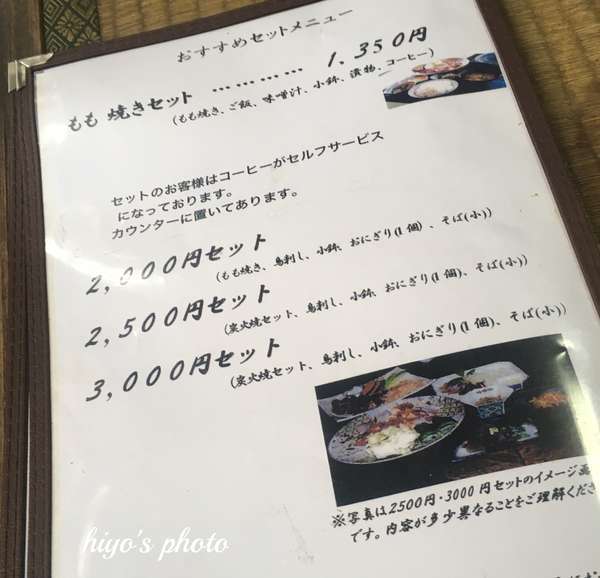 おすすめセットメニュー
もも焼きセット ………… 1,350円
(もも焼き、ご飯、味噌汁、小鉢、漬物、コーヒー)
セットのお客様はコーヒーがセルフサービス
になっております。
カウンターに置いてあります。
2,000円セット
(もも焼き、鳥刺し、小鉢、おにぎり(1個)、そば(小))
2,500円セット
(炭火焼セット、鳥刺し、小鉢、おにぎり(1個)、そば(小))
3,000円セット
(炭火焼セット、鳥刺し、小鉢、おにぎり(1個)、そば(小))
※写真は2500円・3000円セットのイメージ画
です。内容が多少異なることをご理解くださ
hiyo's photo